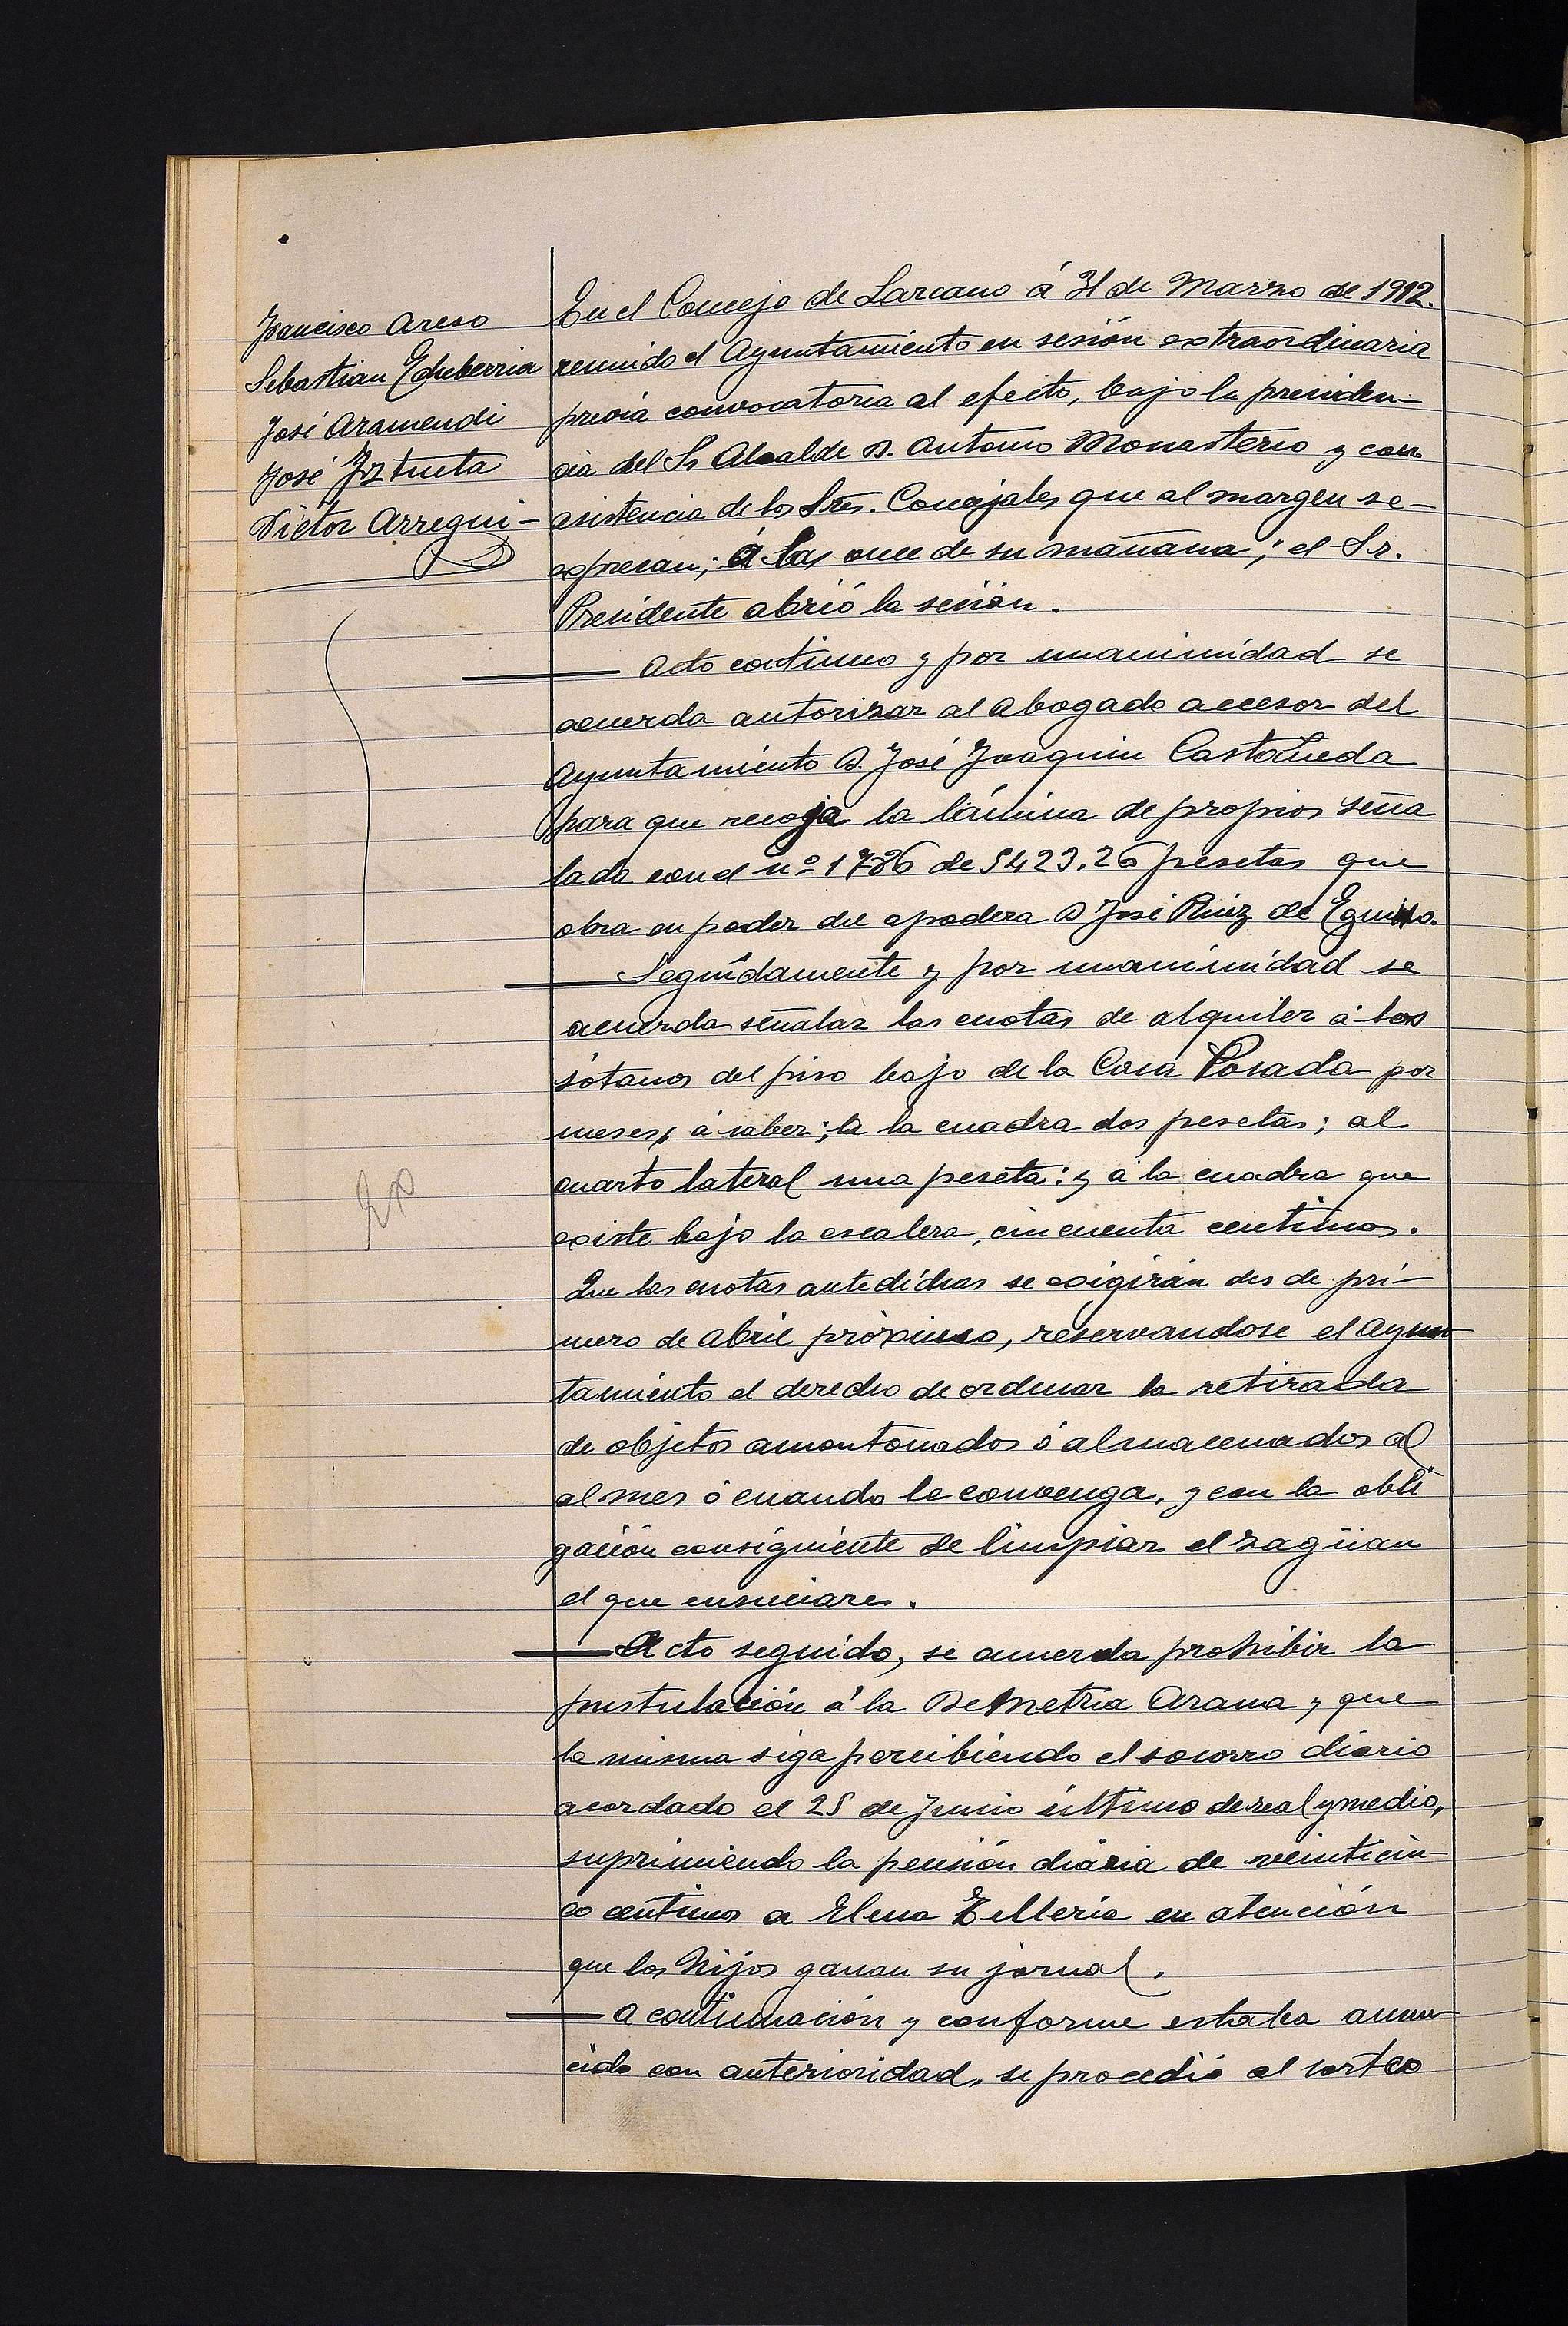 Francisco Areso
Sebastian Echeberria
José Aramendi
José Iztueta
Victor Arregui -
En el Concejo de Larcano á 31 de Marzo de 1912.
reunido el Ayuntamiento en sesión extraordinaria
previa convocatoria al efecto, bajo la presiden-
cia del Sr Alcalde D. Antonio Monasterio y con
asistencia de los Sres. Concejales que al margen se-
expresan; á las once de su mañana; el Sr.
Presidente abrió la sesión.
Acto continuo y por unanimidad se
acuerda autorizar al Abogado accesor del
Ayuntamiento D. José Joaquin Castañeda
para que recoja la lámina de propios seña
lada con el nº 1786 de 5423.26 pesetas que
obra en poder del apodera D José Ruiz de
Seguidamente y por unanimidad se
acuerda señalar las cuotas de alquiler á los
sótanos del piso bajo de la Casa Posada por
meses, á saber; á la cuadra dos pesetas; al
cuarto lateral una peseta: y á la cuadra que
existe bajo la escalera, cincuenta centimos.
Que las cuotas antedichas se exigirán des de pri-
mero de Abril próximo, reservandose el Ayun
tamiento el derecho de ordenar la retirada
de objetos amontonados ó almacenados al
al mes ó cuando le convenga, y con la obli
gación consiguiente de limpiar el zagüan
el que ensuciare.
Acto seguido, se acuerda prohibir la
pustulación á la Demetria Arana y que
la misma siga percibiendo el socorro diario
acordado el 25 de Junio último de real y medio,
suprimiendo la pensión diaria de veinticin-
co centimos a Elena Telleria en atención
que los hijos ganan su jornal.
A continuación y conforme estaba anun
cido con anterioridad, se procedió al sorteo